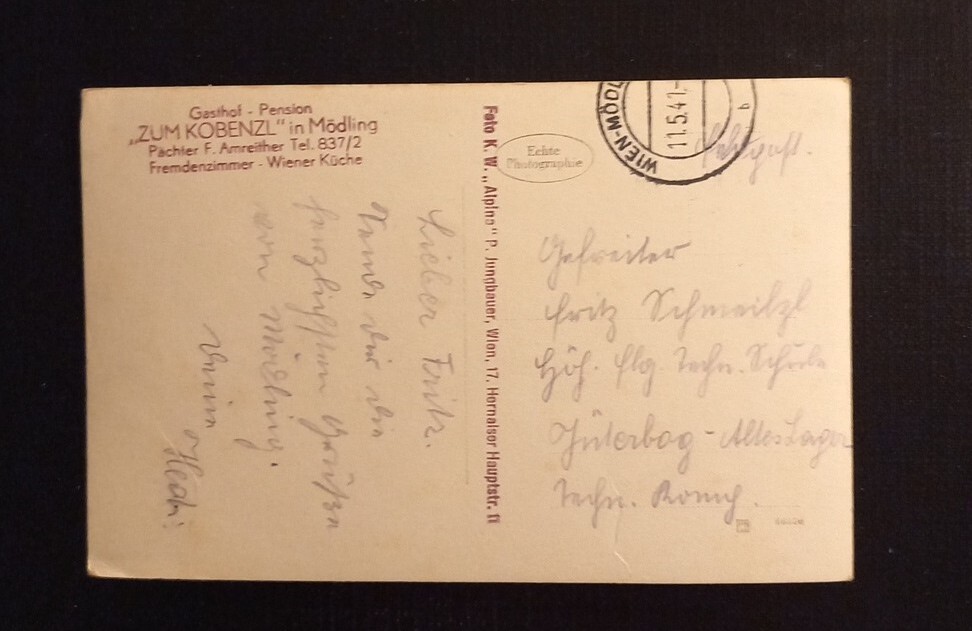 Gasthof - Pension
„ZUM KOBENZL" in Mödling
Pächter F. Amreither Tel. 837/2
Fremdenzimmer - Wiener Küche
Lieber Fritz.
Sende dir die
herzlichsten Grüßen
von Mödling.
Deine Hedi
Foto K. W. „Alpina" P. Jungbauer, Wien, 17. Hernalser Hauptstr. 11
Echte
Photographie
WIEN-MÖDL
11.5.41-
b
Feldpost.
Gefreiter
Fritz Schmeilzl
Höh. flg. Techn. Schule
Jüterbog - Altes Lager
Techn. Komp.